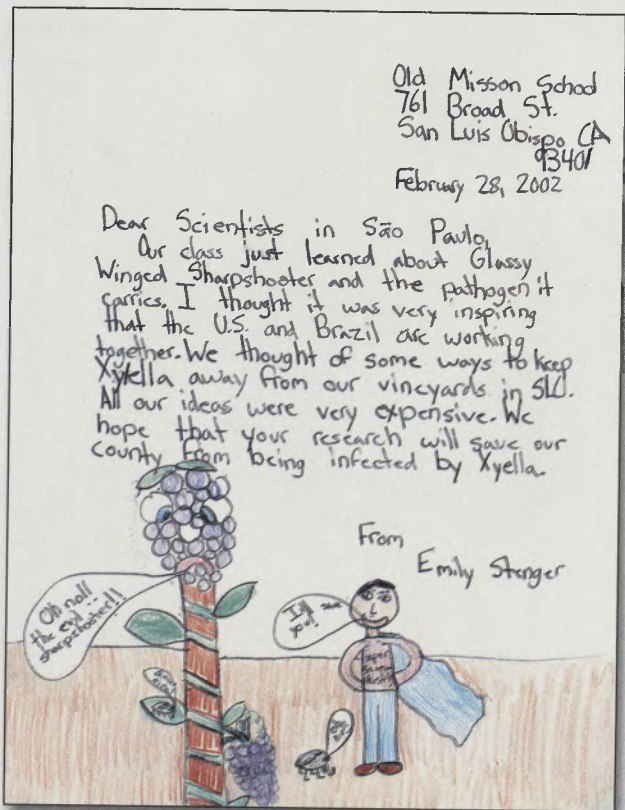 Old Misson School
761 Broad St.
San Luis Obispo CA
93401
February 28, 2002
Dear Scientists in São Paulo,
Our class just learned about Glassy
Winged Sharpshooter and the pathogen it
carries. I thought it was very inspiring
that the U.S. and Brazil are working
together. We thought of some ways to keep
Xyella away from our vineyards in SLO.
All our ideas were very expensive. We
hope that your research will save our
county from being infected by Xyella.
From
Emily Stenger
Oh no!!
the evil
sharpshooter!!
I'll save
you!